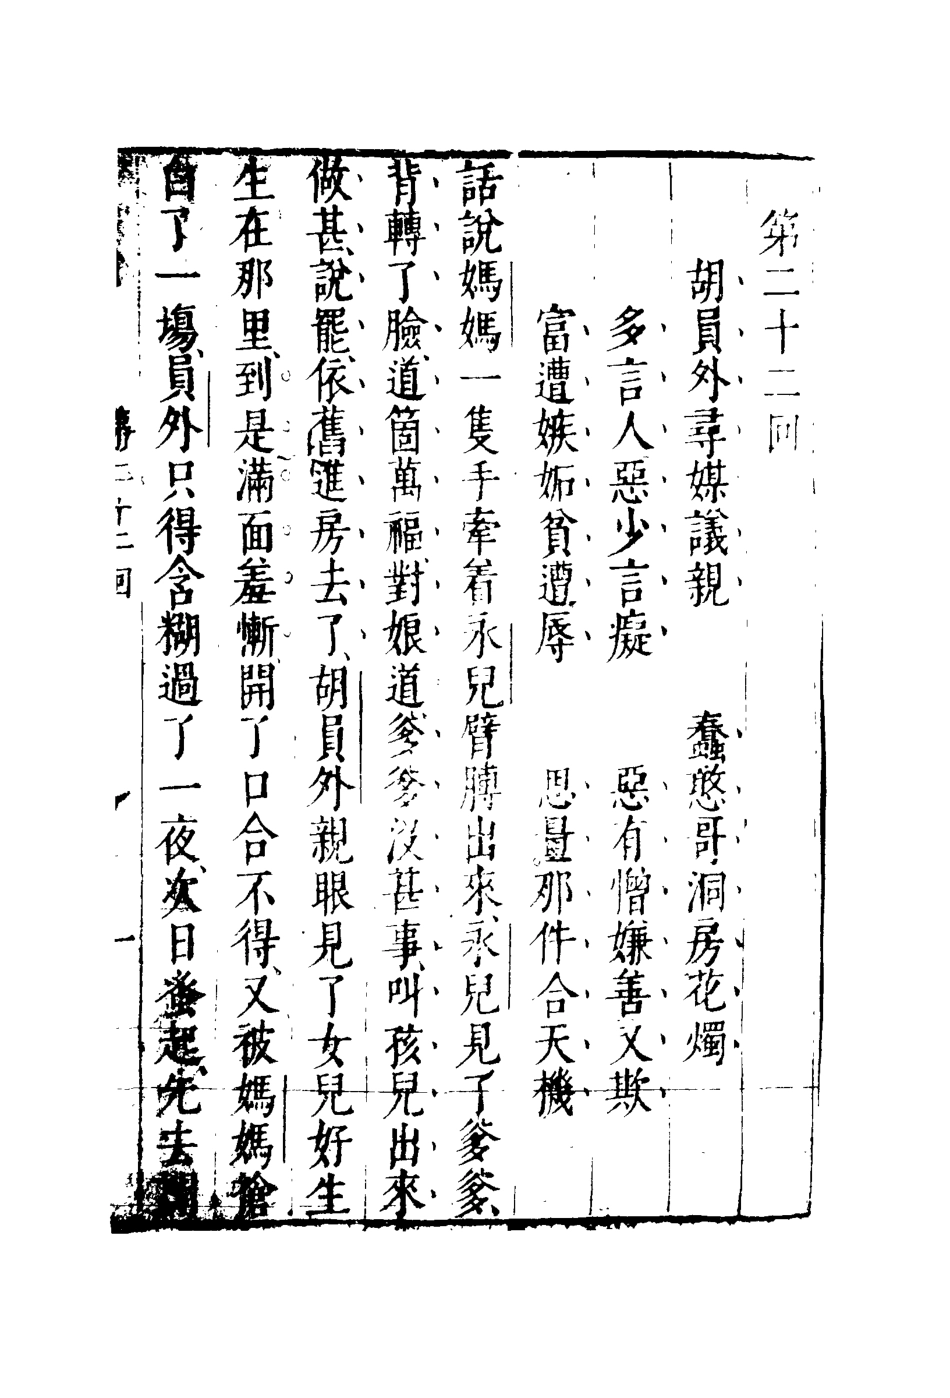 第二十二回
胡員外尋媒議親　蠢憨哥洞房花燭
多言人惡少言癡　惡有憎嫌善又欺
富遭嫉妬貧遭辱　思量那件合天機
話說媽媽一隻手牽着永兒臂膊出來永兒見了爹爹
背轉了臉道箇萬福對娘道爹爹沒甚事叫孩兒出來
做甚說罷依舊進房去了胡員外親眼見了女兒好生
生在那里到是滿面羞慚開了口合不得又被媽媽搶
白了一場員外只得含糊過了一夜次日蚤起先去開
第二十二回
一